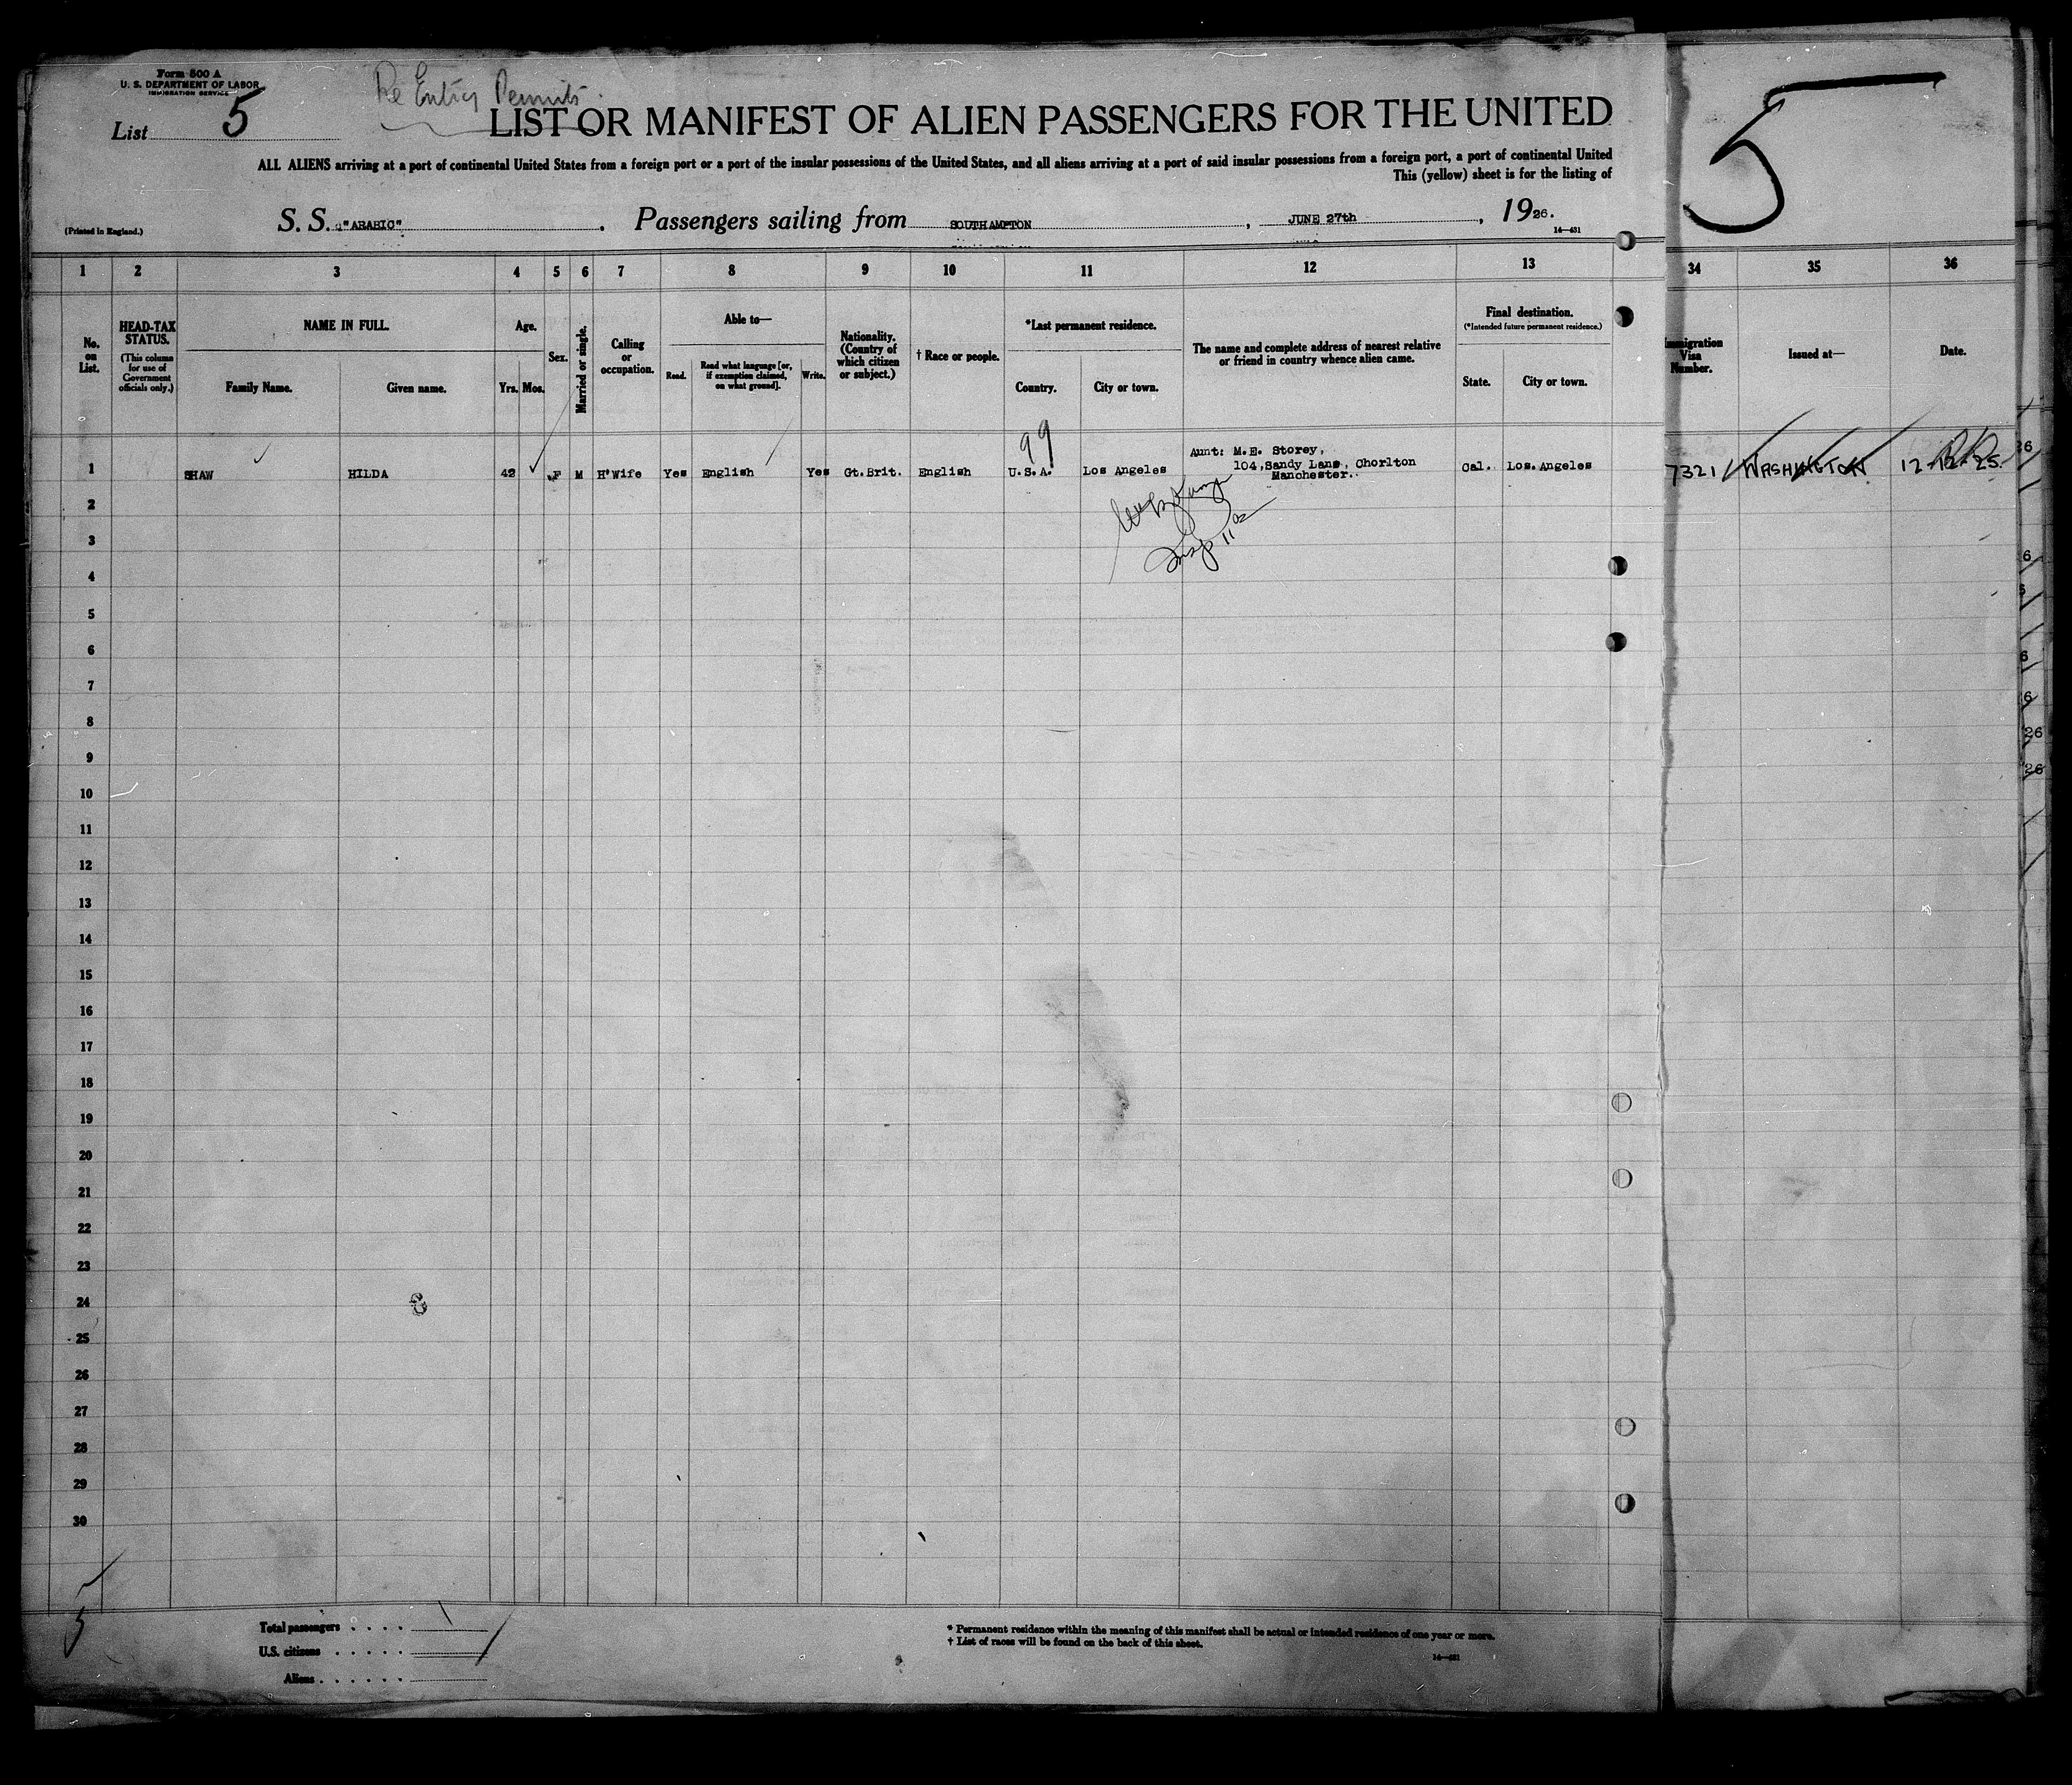 Form 500 A
U. S. DEPARTMENT OF LABOR
IMMIGRATION SERVICE
Re Entry Permits.
List 5
LIST OR MANIFEST OF ALIEN PASSENGERS FOR THE UNITED
5
ALL ALIENS arriving at a port of continental United States from a foreign port or a port of the insular possessions of the United States, and all aliens arriving at a port of said insular possessions from a foreign port, a port of continental United
This (yellow) sheet is for the listing of
(Printed in England.)
S. S. "ARABIC". Passengers sailing from SOUTHAMPTON, JUNE 27th, 1926.
14—431
1 2 3 4 5 6 7 8 9 10 11 12 13 34 35 36
No. on List.
HEAD-TAX STATUS.
(This column for use of Government officials only.)
NAME IN FULL.
Family Name. Given name.
Age.
Yrs. Mos.
Sex.
Married or single.
Calling or occupation.
Able to—
Read. Read what language [or, if exemption claimed, on what ground]. Write.
Nationality. (Country of which citizen or subject.)
† Race or people.
*Last permanent residence.
Country. City or town.
The name and complete address of nearest relative or friend in country whence alien came.
Final destination.
(*Intended future permanent residence.)
State. City or town.
Immigration Visa Number.
Issued at—
Date.
99
1 SHAW HILDA 42 F M H'Wife Yes English Yes Gt.Brit. English U.S.A. Los Angeles Aunt: M.E. Storey, Cal. Los Angeles 7321 WASHINGTON 12-12-25.
104, Sandy Lane, Chorlton
Manchester.
2
3
4
5
6
7
8
9
10
11
12
13
14
15
16
17
18
19
20
21
22
23
24
25
26
27
28
29
30
5
Total passengers . . . .
U.S. citizens . . . . .
Aliens . . . . . .
* Permanent residence within the meaning of this manifest shall be actual or intended residence of one year or more.
† List of races will be found on the back of this sheet.
14—431